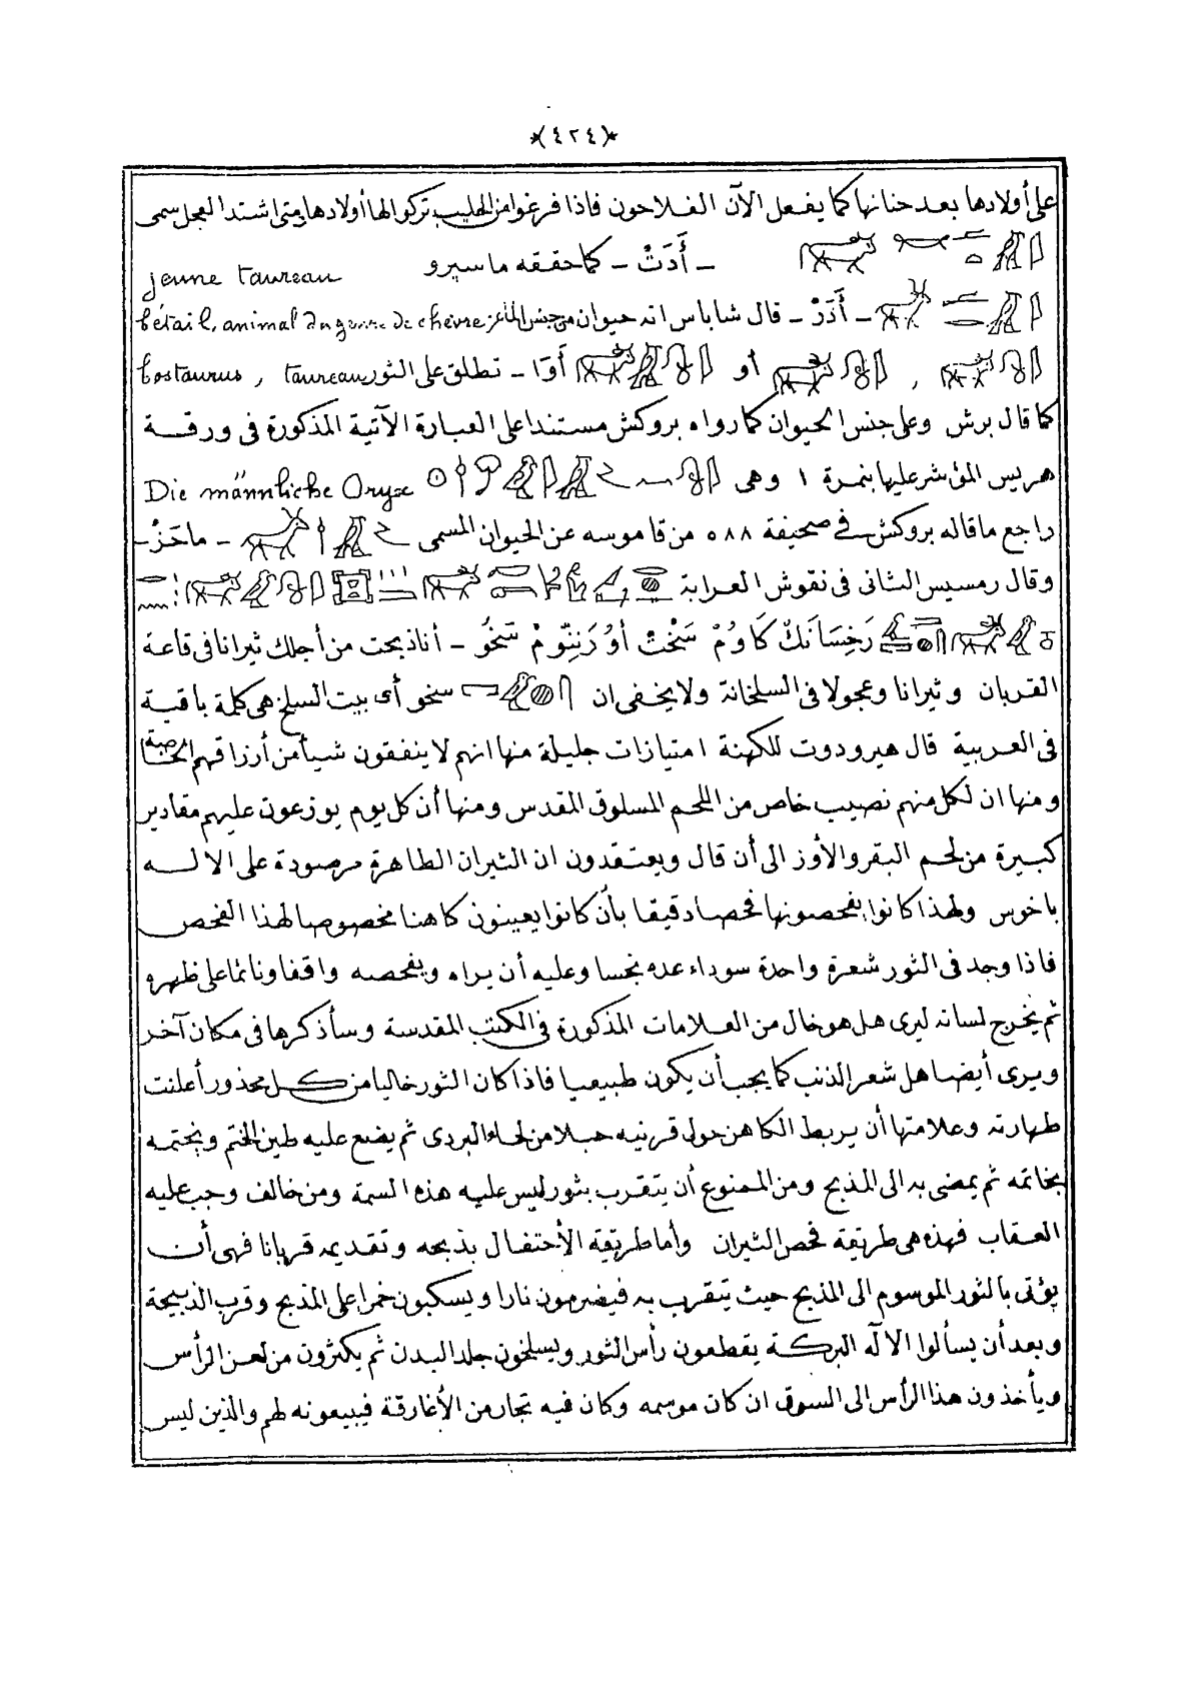 *(٤٢٤)*
على أولادها بعد حنانها كما يفعل الآن الفلاحون فاذا فرغوا من الحليب تركوا لها أولادها ومتى اشتد العجل سمى
ــ أَدَتْ ــ كما حققه ماسپرو jeune taureau
ــ أَدَرْ ــ قال شاباس انه حيوان من جنس الماعز bétail, animal du genre de chèvre
, أو أَوَا ــ تطلق على الثور bostaurus, taureau
كما قال برش وعلى جنس الحيوان كما رواه بروكش مستندا على العبارة الآتية المذكورة فى ورقة
هريس المؤشر عليها بنمرة ١ وهى Die männliche Oryxe
راجع ما قاله بروكش فى صحيفة ٥٨٨ من قاموسه عن الحيوان المسمى ــ ماحَزْ ــ
وقال رمسيس الثانى فى نقوش العرابة
رَخِسَا نَكْ كَاوُمْ سَخْتْ أوُ رَنِنّوُ مْ سَخُو ــ أنا ذبحت من أجلك ثيرانا فى قاعة
القربان وثيرانا وعجولا فى السلخانة ولا يخفى ان سخو أى بيت السلخ هى كلمة باقية
فى العربية قال هيرودوت للكهنة امتيازات جليلة منها انهم لا ينفقون شيأ من أرزاقهم الخاصة
ومنها ان لكل منهم نصيب خاص من اللحم المسلوق المقدس ومنها أن كل يوم يوزعون عليهم مقادير
كبيرة من لحم البقر والأوز الى أن قال ويعتقدون ان الثيران الطاهرة مرصودة على الاله
باخوس ولهذا كانوا يفحصونها فحصا دقيقا بأن كانوا يعينون كاهنا مخصوصا لهذا الفحص
فاذا وجد فى الثور شعرة واحدة سوداء عده نجسا وعليه أن يراه ويفحصه واقفا ونائما على ظهره
ثم يخرج لسانه ليرى هل هو خال من العلامات المذكورة فى الكتب المقدسة وسأذكرها فى مكان آخر
ويرى أيضا هل شعر الذنب كما يجب أن يكون طبيعيا فاذا كان الثور خاليا من كل محذور أعلنت
طهارته وعلامتها أن يربط الكاهن حول قرنيه حبلا من لحاء البردى ثم يضع عليه طين الختم ويختمه
بخاتمه ثم يمضى به الى المذبح ومن الممنوع أن يتقرب بثور ليس عليه هذه السمة ومن خالف وجب عليه
العقاب فهذه هى طريقة فحص الثيران وأما طريقة الأحتفال بذبحه وتقديمه قربانا فهى أن
يؤتى بالثور الموسوم الى المذبح حيث يتقرب به فيضرمون نارا ويسكبون خمرا على المذبح وقرب الذبيحة
وبعد أن يسألوا الالٓه البركة يقطعون رأس الثور ويسلخون جلد البدن ثم يكثرون من لعن الرأس
ويأخذون هذا الرأس الى السوق ان كان موسمه وكان فيه تجار من الأغارقة فيبيعونه لهم والذين ليس